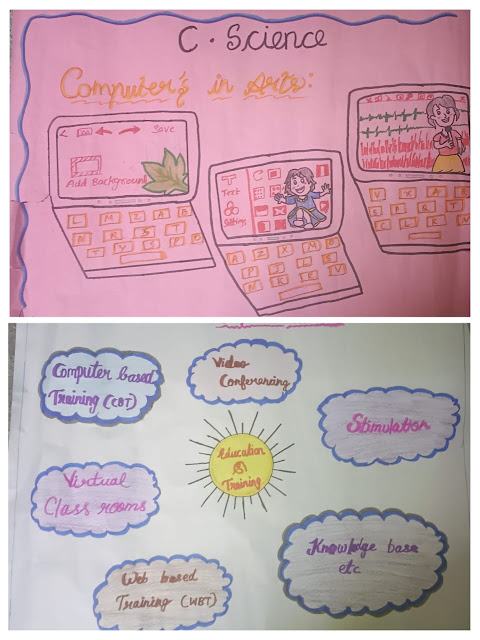 C. Science
Computer's in Arts:
< Save
Add Background
L M Z A B
N R S T
T Y S P O
Text
A Z X M O
M K E V
V X A B
Computer based
Training (CBT)
Video
Conferencing
Stimulation
Education
&
Training
Virtual
Class rooms
Knowledge base
etc
Web based
Training (WBT)